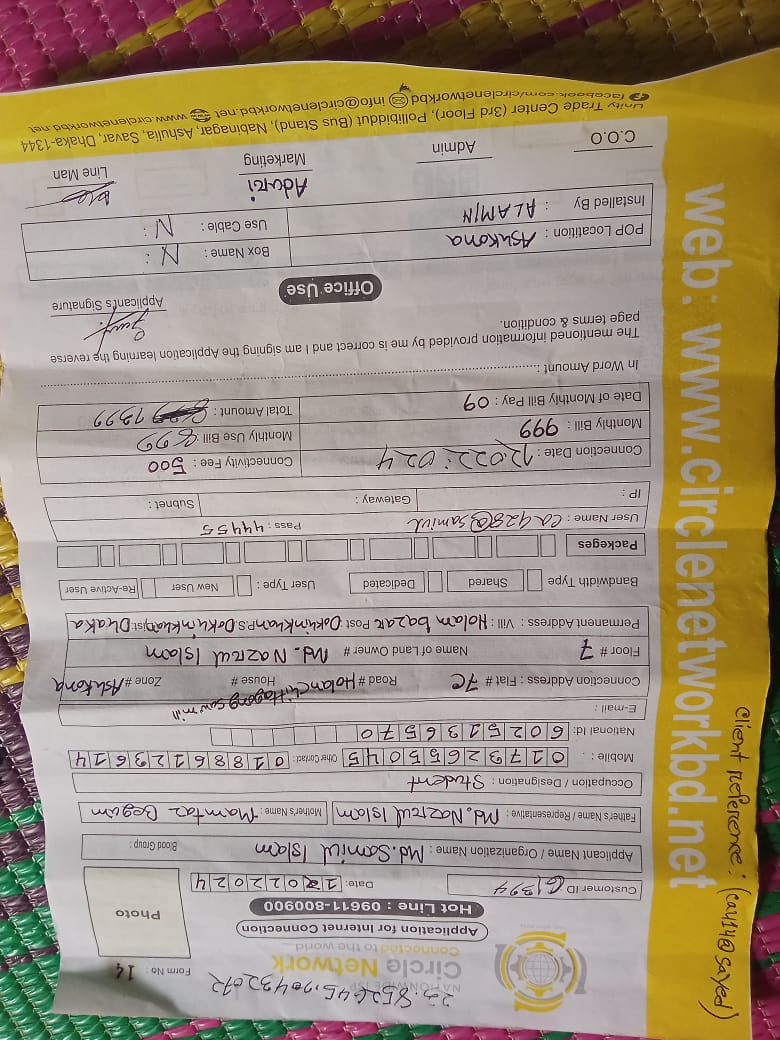 NATIONWIDE ISP
Circle Network
Connected to the world
Form No : 14
Application for Internet Connection
Hot Line : 09611-800900
Photo
Customer ID 61394
Date: 12022024
Applicant Name / Organization Name : Md. Samiul Islam
Blood Group :
Father's Name / Representative : Md. Nazrul Islam
Mother's Name : Mamtaz Begum
Occupation / Designation : Student
Mobile : 01732655045
Other Contact : 01886123614
National Id: 6025136570
E-mail :
Connection Address : Flat # 7C Road # Holan Chittagong saw mill House # Zone # Ashkona
Floor # 7 Name of Land Owner # Md. Nazrul Islam
Permanent Address : Vill : Holam bazar Post : P.S: Dist: Dhaka
Bandwidth Type Shared Dedicated User Type : New User Re-Active User
Packeges
User Name : @samiul Pass : 44455
IP : Gateway : Subnet :
Connection Date : 12.02.:024 Connectivity Fee : 500
Monthly Bill : 999 Monthly Use Bill :
Date of Monthly Bill Pay : 09 Total Amount :
In Word Amount :
The mentioned information provided by me is correct and I am signing the Application learning the reverse
page terms & condition.
Applicant's Signature
Office Use
POP Locatition : Asukona Box Name : N :
Installed By : ALAMIN Use Cable : N :
C.O.O Admin Marketing Line Man
Unity Trade Center (3rd Floor), Pollibiddut (Bus Stand), Nabinagar, Ashulia, Savar, Dhaka-1344
facebook.com/circlenetworkbd info@circlenetworkbd.net www.circlenetworkbd.net
web: www.circlenetworkbd.net
client reference : (ca414@sayed)